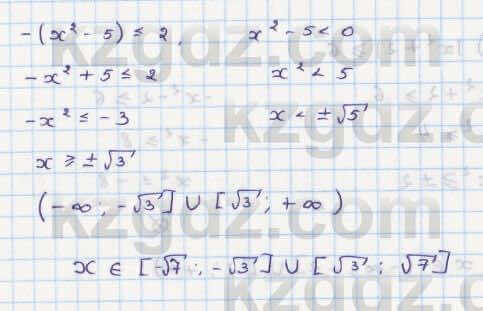 -(x² - 5) ≤ 2, x² - 5 < 0
-x² + 5 ≤ 2 x² < 5
-x² ≤ -3 x < ±√5
x ≥ ±√3
(-∞; -√3] ∪ [√3; +∞)
x ∈ [-√7; -√3] ∪ [√3; √7]
kzgdz.com
kzgdz.com
kzgdz.com